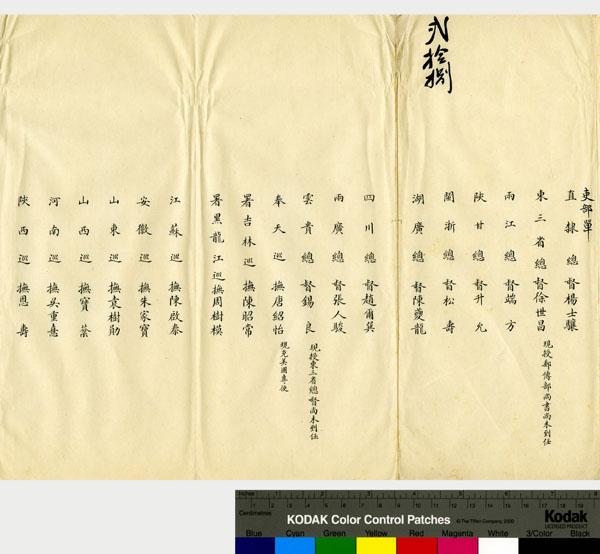 弍拾捌
吏部單
直隸總督楊士驤
東三省總督徐世昌 現授郵傳部尚書尚未到任
兩江總督端方
陝甘總督升允
閩浙總督松壽
湖廣總督陳夔龍
四川總督趙爾巽
兩廣總督張人駿
雲貴總督錫良 現授東三省總督尚未到任
奉天巡撫唐紹怡 現充美國專使
署吉林巡撫陳昭常
署黑龍江巡撫周樹模
江蘇巡撫陳啟泰
安徽巡撫朱家寶
山東巡撫袁樹勛
山西巡撫寶棻
河南巡撫吳重憙
陝西巡撫恩壽
Inches
Centimetres
KODAK Color Control Patches
© The Tiffen Company, 2000
Kodak
LICENSED PRODUCT
Blue Cyan Green Yellow Red Magenta White 3/Color Black